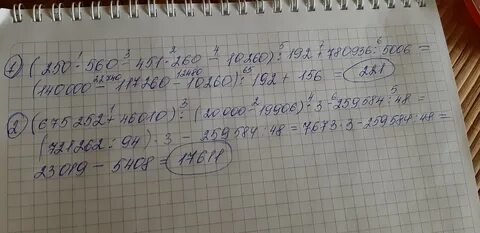 1) (250 · 560 - 451 · 260 - 10260) : 192 + 780936 : 5006 =
(140000 - 117260 - 10260) : 192 + 156 = 221
2) (675252 + 46010) : (20000 - 19906) · 3 - 259584 : 48 =
(721262 : 94) · 3 - 259584 : 48 = 7673 · 3 - 259584 : 48 =
23019 - 5408 = 17611